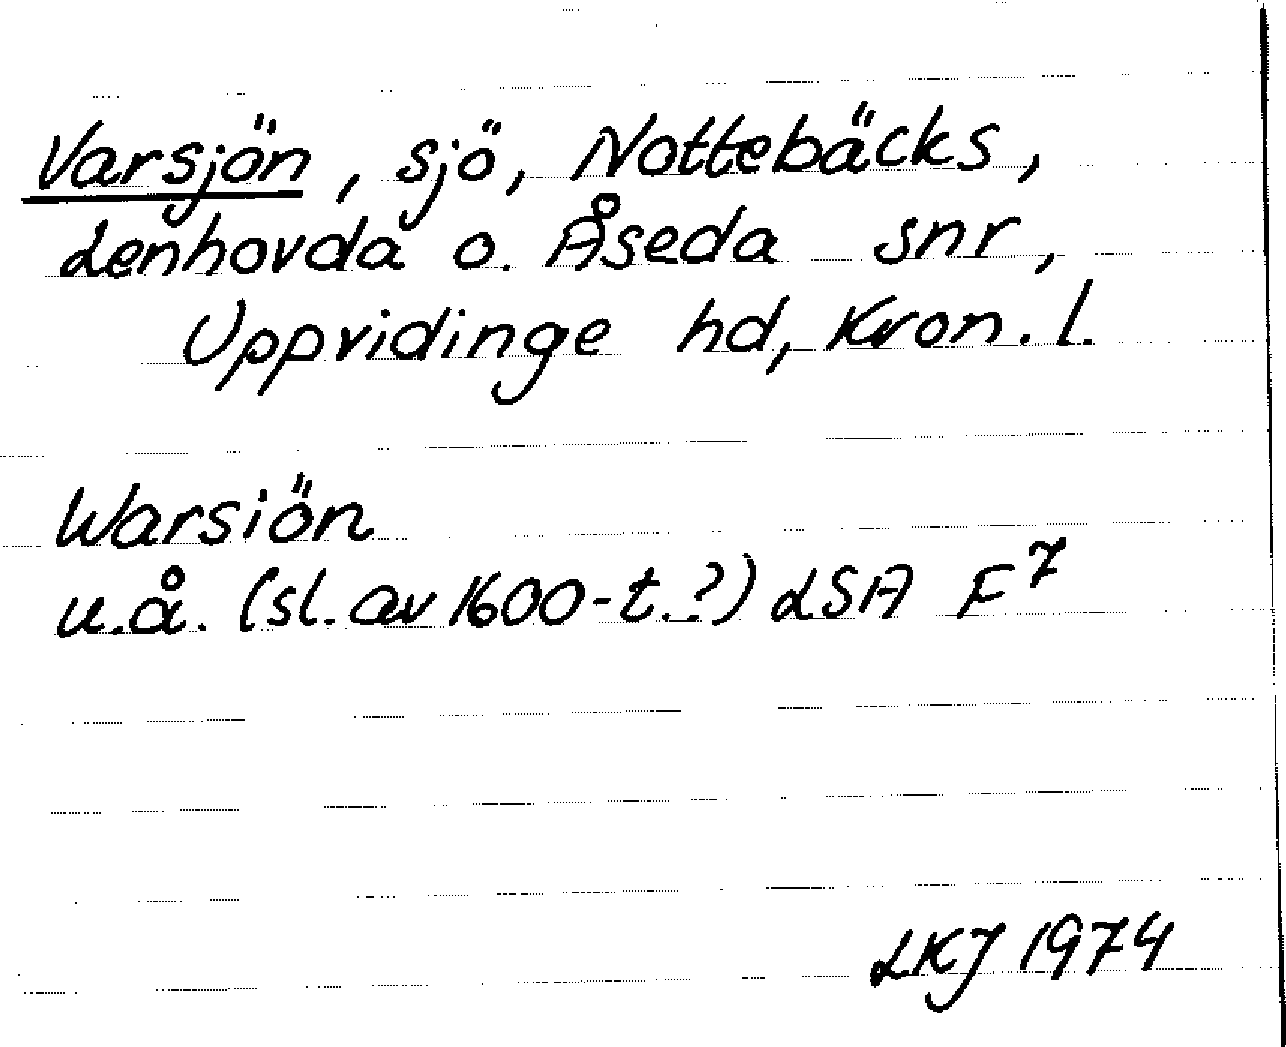 Varsjön, sjö, Nottebäcks,
Lenhovda o. Åseda snr,
Uppvidinge hd, Kron. l.
Warsiön
u.å. (sl. av 1600-t.?) LSA F⁷
LKJ 1974